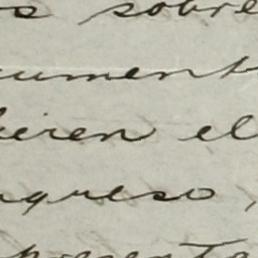 s sobre
cument
ieren el
ngreso,
presenta